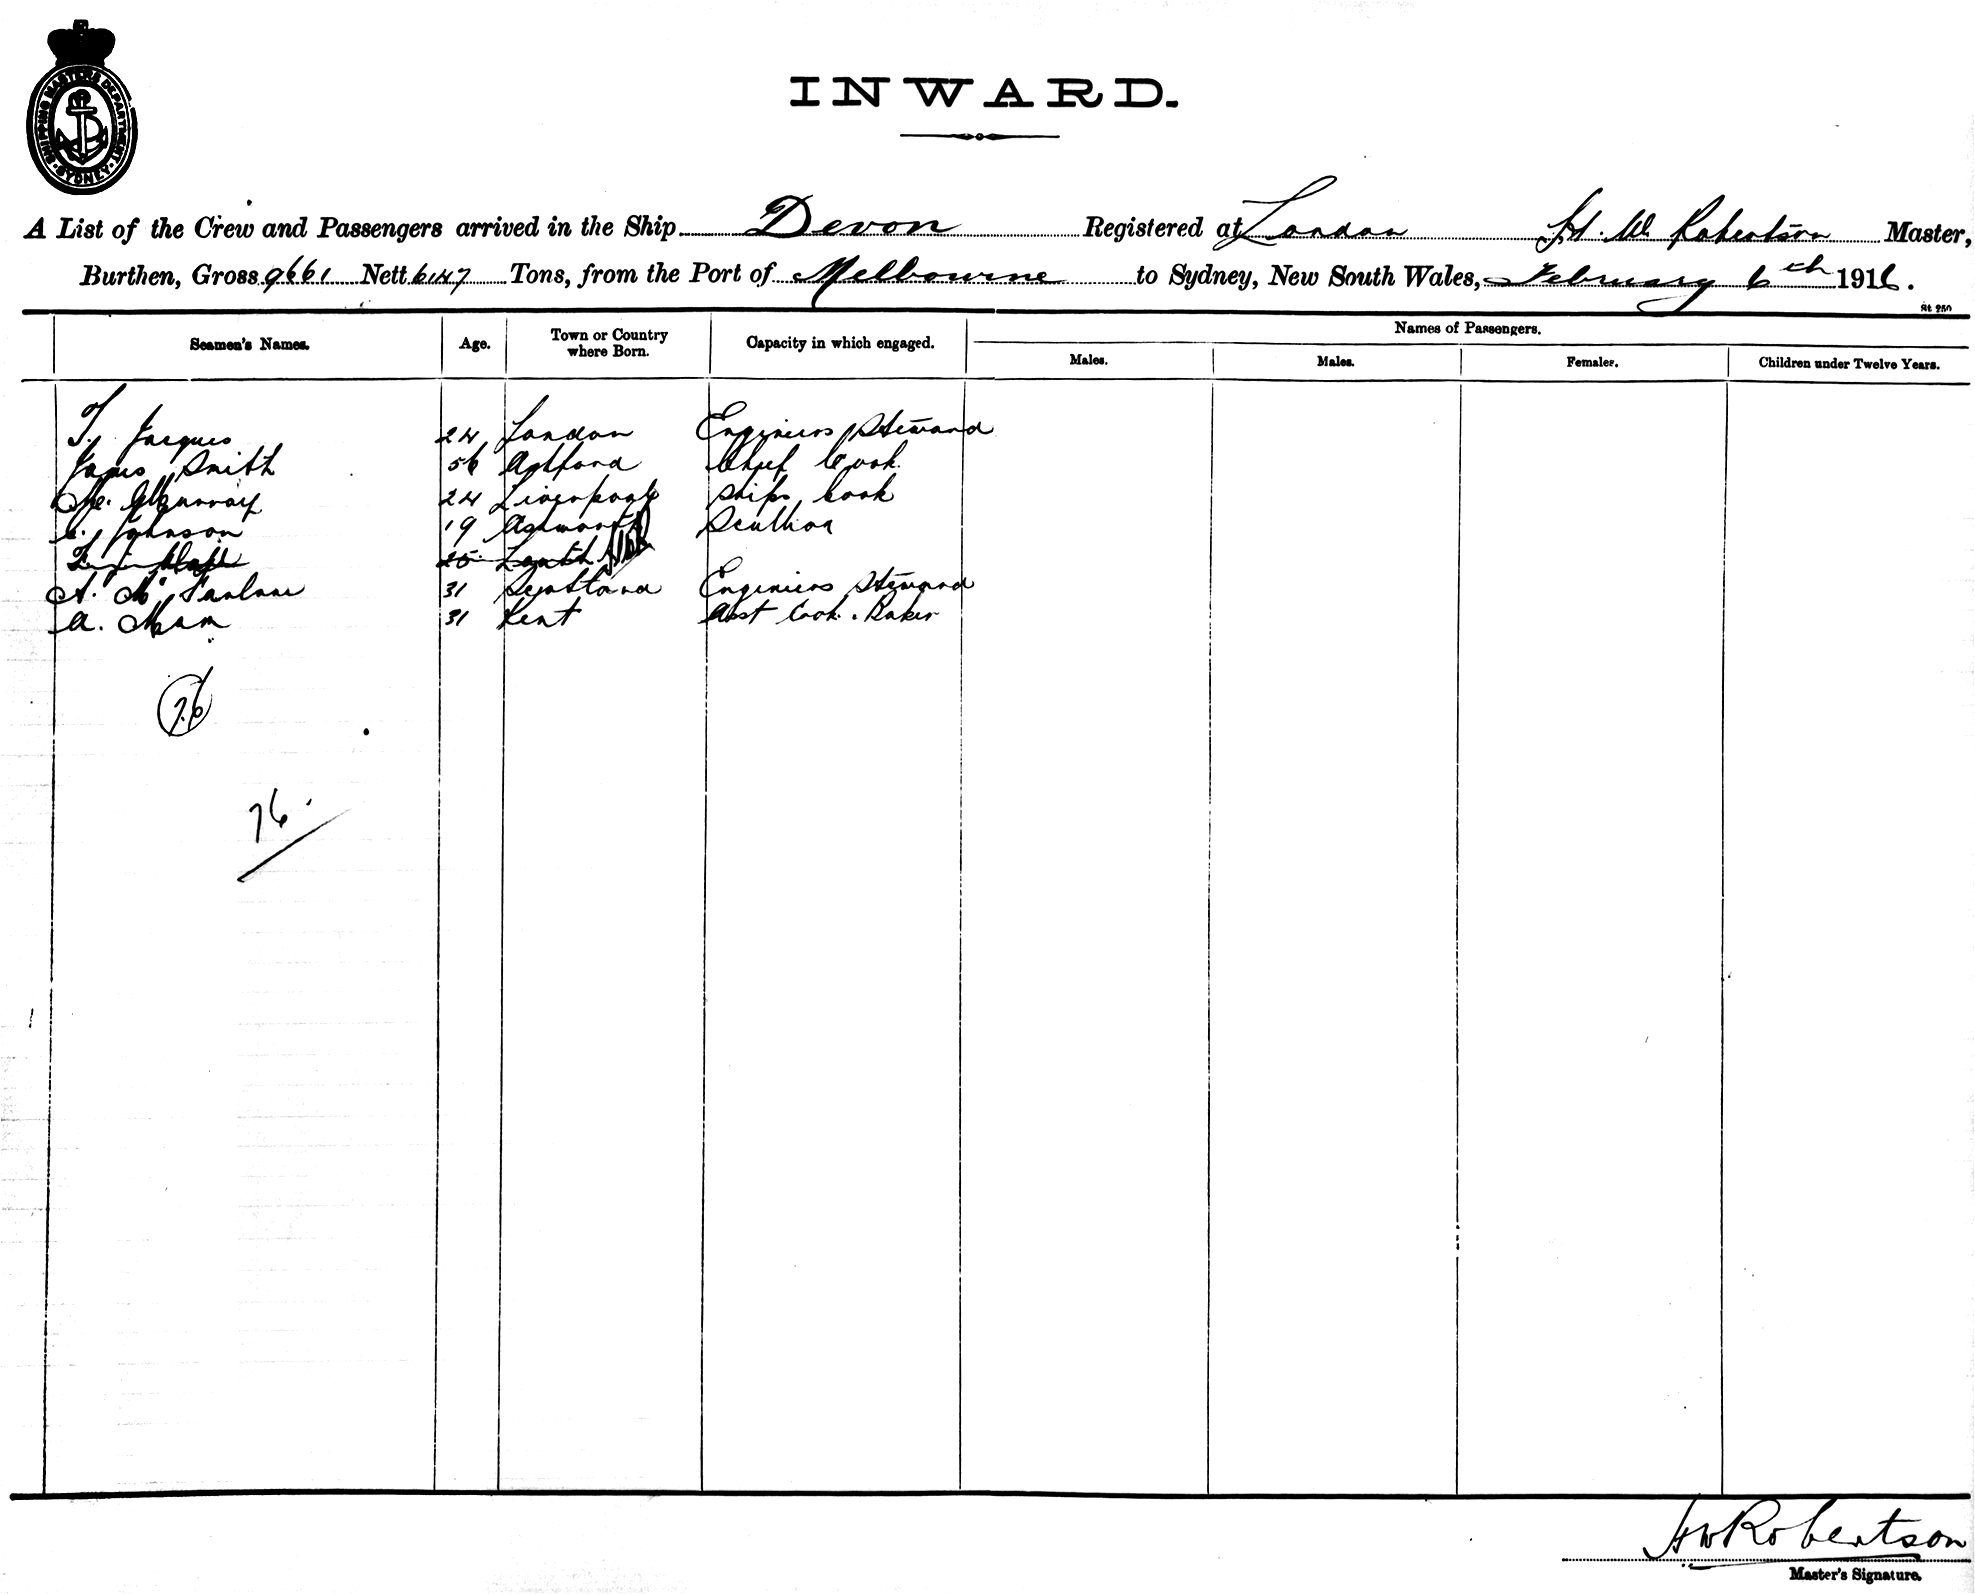 SHIPPING MASTERS DEPARTMENT · SYDNEY ·
INWARD.
A List of the Crew and Passengers arrived in the Ship Devon Registered at London H. W. Robertson Master,
Burthen, Gross 9661 Nett 6147 Tons, from the Port of Melbourne to Sydney, New South Wales, February 6th 1916.
St 250
Seamen's Names. Age. Town or Country where Born. Capacity in which engaged. Names of Passengers.
Males. Males. Females. Children under Twelve Years.
T. Jacques 24 London Engineers Steward
James Smith 56 Ashford Chief Cook.
Murray 24 Liverpool Ships Cook
C. Johnson 19 Ashworth Scullion
25
A. McFarlane 31 Scotland Engineers Steward
A. Mam 31 Kent Asst Cook. Baker
76
76.
HW Robertson
Master's Signature.